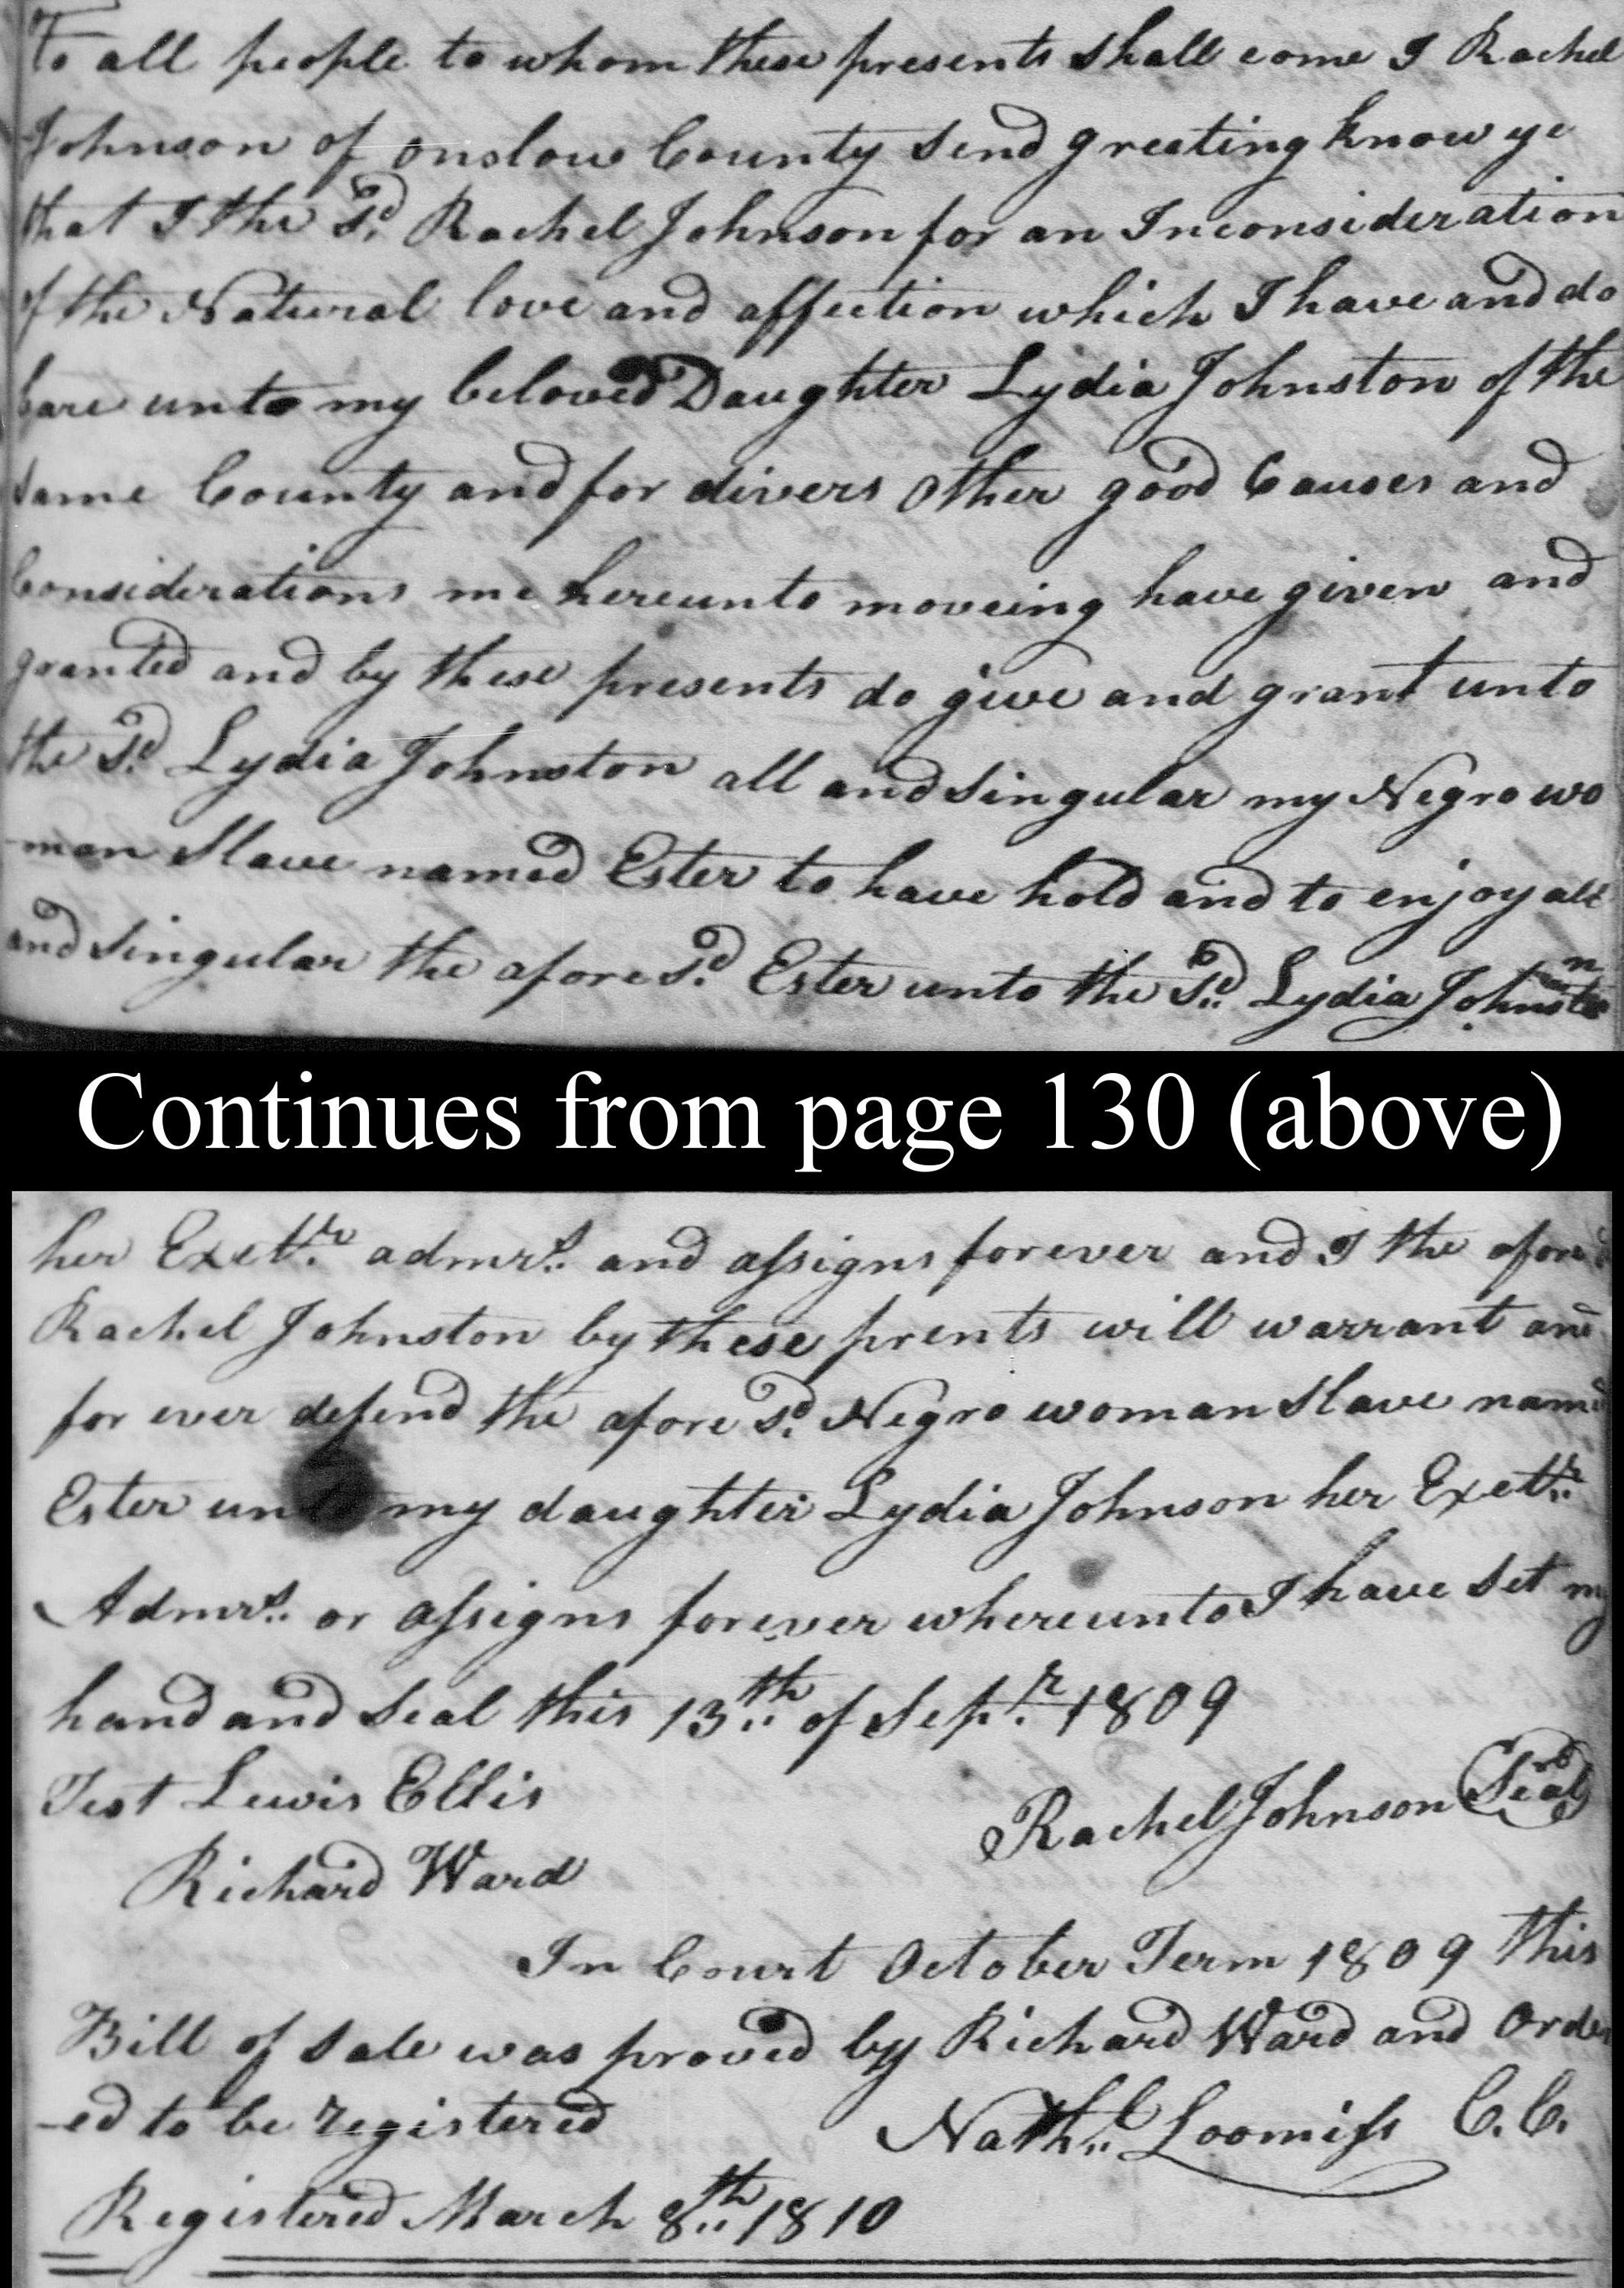 To all people to whom these presents shall come I Rachel
Johnson of onslow County Send greeting know ye
that I the Sd. Rachel Johnson for an Inconsideration
of the Natural love and affection which I have and do
bare unto my beloved Daughter Lydia Johnston of the
Same County and for divers other good Causes and
Considerations me hereunto moveing have given and
granted and by these presents do give and grant unto
the Sd. Lydia Johnston all and Singular my Negro wo
-man Slave named Ester to have hold and to enjoy all
and Singular the afore Sd. Ester unto the Sd. Lydia Johnston
Continues from page 130 (above)
her Exetr. admrs. and assigns forever and I the afore
Rachel Johnston by these prents will warrant and
for ever defend the afore Sd. Negro woman Slave named
Ester un my daughter Lydia Johnson her Exetr.
Admrs. or assigns forever whereunto I have Set my
hand and Seal this 13th. of Sepr. 1809
Test Lewis Ellis
Rachel Johnson Seal
Richard Ward
In Court October Term 1809 this
Bill of Sale was proved by Richard Ward and Order
-ed to be registered
Nathl. Loomiss C.C.
Registered March 8th. 1810